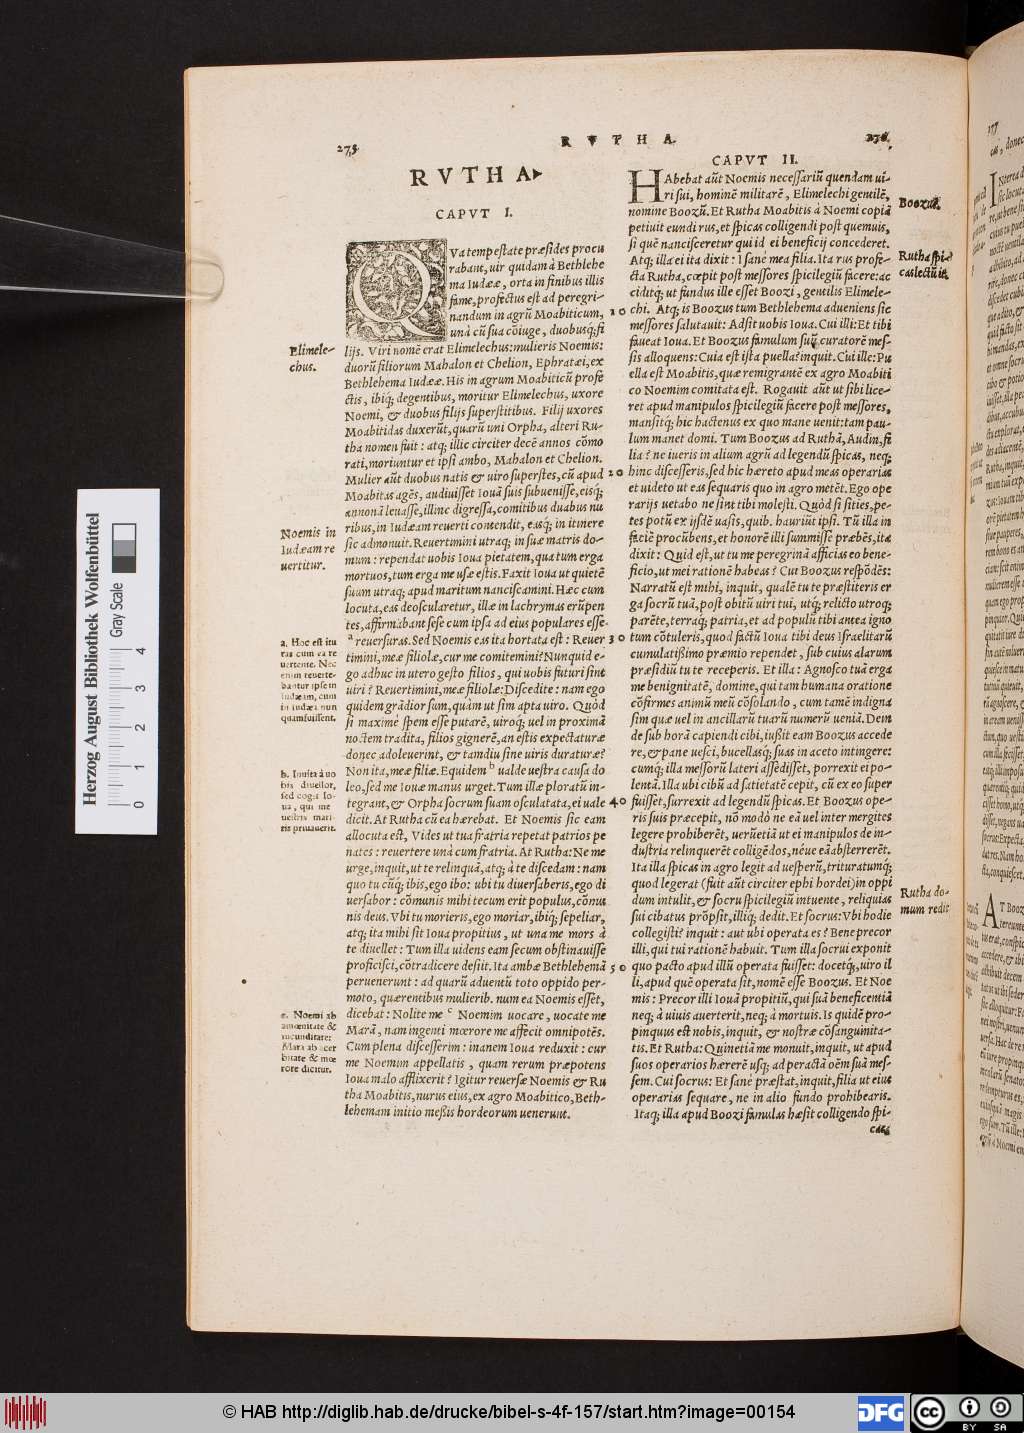 275.
R V T H A.
276.
R V T H A
CAPVT I.
QVa tempeſtate præſides procu
rabant, uir quidam à Bethlehe
ma Iudææ, orta in finibus illis
fame, profectus eſt ad peregri-
nandum in agrū Moabiticum,
unà cū ſua cōiuge, duobusq; fi
lijs. Viri nomē erat Elimelechus: mulieris Noemis:
duorū filiorum Mahalon et Chelion, Ephratæi, ex
Bethlehema Iudææ. His in agrum Moabiticū profe
ctis, ibiq; degentibus, moritur Elimelechus, uxore
Noemi, & duobus filijs ſuperſtitibus. Filij uxores
Moabitidas duxerūt, quarū uni Orpha, alteri Ru-
tha nomen fuit: atq; illic circiter decē annos cōmo
rati, moriuntur et ipſi ambo, Mahalon et Chelion.
Mulier aūt duobus natis & uiro ſuperſtes, cū apud
Moabitas agēs, audiuiſſet Iouā ſuis ſubueniſſe, eisq;
annonā leuaſſe, illinc digreſſa, comitibus duabus nu
ribus, in Iudæam reuerti contendit, easq; in itinere
ſic admonuit. Reuertimini utraq; in ſuæ matris do-
mum: rependat uobis Ioua pietatem, qua tum erga
mortuos, tum erga me uſæ eſtis. Faxit Ioua ut quietē
ſuam utraq; apud maritum nanciſcamini. Hæc cum
locuta, eas deoſcularetur, illæ in lachrymas erūpen
tes, affirmabant ſeſe cum ipſa ad eius populares eſſe-
a reuerſuras. Sed Noemis eas ita hortata eſt: Reuer
timini, meæ filiolæ, cur me comitemini? Nunquid e-
go adhuc in utero geſto filios, qui uobis futuri ſint
uiri? Reuertimini, meæ filiolæ: Diſcedite: nam ego
quidem grādior ſum, quàm ut ſim apta uiro. Quòd
ſi maximè ſpem eſſe putarē, uiroq; uel in proximā
noctem tradita, filios gignerē, an eſtis expectaturæ
donec adoleuerint, & tamdiu ſine uiris duraturæ?
Non ita, meæ filiæ. Equidem b ualde ueſtra cauſa do
leo, ſed me Iouæ manus urget. Tum illæ ploratū in-
tegrant, & Orpha ſocrum ſuam oſculatata, ei uale
dicit. At Rutha cū ea hærebat. Et Noemi ſic eam
allocuta eſt, Vides ut tua fratria repetat patrios pe
nates: reuertere unà cum fratria. At Rutha: Ne me
urge, inquit, ut te relinquā, atq; à te diſcedam: nam
quo tu cūq; ibis, ego ibo: ubi tu diuerſaberis, ego di
uerſabor: cōmunis mihi tecum erit populus, cōmu
nis deus. Vbi tu morieris, ego moriar, ibiq; ſepeliar,
atq; ita mihi ſit Ioua propitius, ut una me mors à
te diuellet: Tum illa uidens eam ſecum obſtinauiſſe
proficiſci, cōtradicere deſiit. Ita ambæ Bethlehemā
peruenerunt: ad quarū aduentū toto oppido per-
moto, quærentibus mulierib. num ea Noemis eſſet,
dicebat: Nolite me c Noemim uocare, uocate me
Marā, nam ingenti mœrore me affecit omnipotēs.
Cum plena diſceſſerim: inanem Ioua reduxit: cur
me Noemim appellatis, quam rerum præpotens
Ioua malo afflixerit? Igitur reuerſæ Noemis & Ru
tha Moabitis, nurus eius, ex agro Moabitico, Beth-
lehemam initio meßis hordeorum uenerunt.
Elimele-
chus.
Noemis in
Iudæam re
uertitur.
a. Hoc eſt itu
ras cum ea re
uertente. Nec
enim reuerte-
bantur ipſe in
Iudæam, cum
in Iudæa nun
quam fuiſſent.
b. Inuita à uo
bis diuellor,
ſed cogit Io-
ua, qui me
ueſtris mari-
tis priuauerit.
c. Noemi ab
amœnitate &
iucunditate:
Mara ab acer
bitate & mœ
rore dicitur.
10
20
30
40
50
CAPVT II.
HAbebat aūt Noemis neceſſariū quendam ui-
ri ſui, hominē militarē, Elimelechi gentilē,
nomine Boozū. Et Rutha Moabitis à Noemi copiā
petiuit eundi rus, et ſpicas colligendi poſt quemuis,
ſi quē nanciſceretur qui id ei beneficij concederet.
Atq; illa ei ita dixit: I ſanè mea filia. Ita rus profe-
cta Rutha, cœpit poſt meſſores ſpicilegiū facere: ac
ciditq; ut fundus ille eſſet Boozi, gentilis Elimele-
chi. Atq; is Boozus tum Bethlehema adueniens ſic
meſſores ſalutauit: Adſit uobis Ioua. Cui illi: Et tibi
faueat Ioua. Et Boozus famulum ſuū, curatorē meſ-
ſis alloquens: Cuia eſt iſta puella? inquit. Cui ille: Pu
ella eſt Moabitis, quæ remigrantē ex agro Moabiti
co Noemim comitata eſt. Rogauit aūt ut ſibi lice-
ret apud manipulos ſpicilegiū facere poſt meſſores,
manſitq; hic hactenus ex quo mane uenit: tam pau-
lum manet domi. Tum Boozus ad Ruthā, Audin, fi
lia? ne iueris in alium agrū ad legendū ſpicas, neq;
hinc diſceſſeris, ſed hic hæreto apud meas operarias
et uideto ut eas ſequaris quo in agro metēt. Ego ope
rarijs uetabo ne ſint tibi moleſti. Quòd ſi ſities, pe-
tes potū ex ijſdē uaſis, quib. hauriūt ipſi. Tū illa in
faciē procūbens, et honorē illi ſummiſſè præbēs, ita
dixit: Quid eſt, ut tu me peregrinā afficias eo bene-
ficio, ut mei rationē habeas? Cui Boozus reſpōdēs:
Narratū eſt mihi, inquit, qualē tu te præſtiteris er
ga ſocrū tuā, poſt obitū uiri tui, utq; relicto utroq;
parēte, terraq; patria, et ad populū tibi antea igno
tum cōtuleris, quod factū Ioua tibi deus Iſraelitarū
cumulatißimo præmio rependet, ſub cuius alarum
præſidiū tu te receperis. Et illa: Agnoſco tuā erga
me benignitatē, domine, qui tam humana oratione
cōfirmes animū meū cōſolando, cum tamē indigna
ſim quæ uel in ancillarū tuarū numerū ueniā. Dein
de ſub horā capiendi cibi, iußit eam Boozus accede
re, & pane ueſci, bucellasq; ſuas in aceto intingere:
cumq; illa meſſorū lateri aſſediſſet, porrexit ei po-
lentā. Illa ubi cibū ad ſatietatē cepit, cū ex eo ſuper
fuiſſet, ſurrexit ad legendū ſpicas. Et Boozus ope-
ris ſuis præcepit, nō modò ne eā uel inter mergites
legere prohiberēt, uerūetiā ut ei manipulos de in-
duſtria relinquerēt colligēdos, néue eā abſterrerēt.
Ita illa ſpicas in agro legit ad ueſperū, trituratumq;
quod legerat (fuit aūt circiter ephi hordei) in oppi
dum intulit, & ſocru ſpicilegiū intuente, reliquias
ſui cibatus prōpſit, illiq; dedit. Et ſocrus: Vbi hodie
collegiſti? inquit: aut ubi operata es? Bene precor
illi, qui tui rationē habuit. Tum illa ſocrui exponit
quo pacto apud illū operata fuiſſet: docetq; uiro il
li, apud quē operata ſit, nomē eſſe Boozus. Et Noe
mis: Precor illi Iouā propitiū, qui ſuā beneficentiā
neq; à uiuis auerterit, neq; à mortuis. Is quidē pro-
pinquus eſt nobis, inquit, & noſtræ cōſanguinita-
tis. Et Rutha: Quinetiā me monuit, inquit, ut apud
ſuos operarios hærerē uſq; ad peractā oēm ſuā meſ-
ſem. Cui ſocrus: Et ſanè præſtat, inquit, filia ut eius
operarias ſequare, ne in alio fundo prohibearis.
Itaq; illa apud Boozi famulas hæſit colligendo ſpi-
cas,
Boozus.
Rutha ſpi-
cas lectū it.
Rutha do-
mum redit
Herzog August Bibliothek Wolfenbüttel
Gray Scale
0 1 2 3 4
© HAB http://diglib.hab.de/drucke/bibel-s-4f-157/start.htm?image=00154
DFG
cc
BY SA